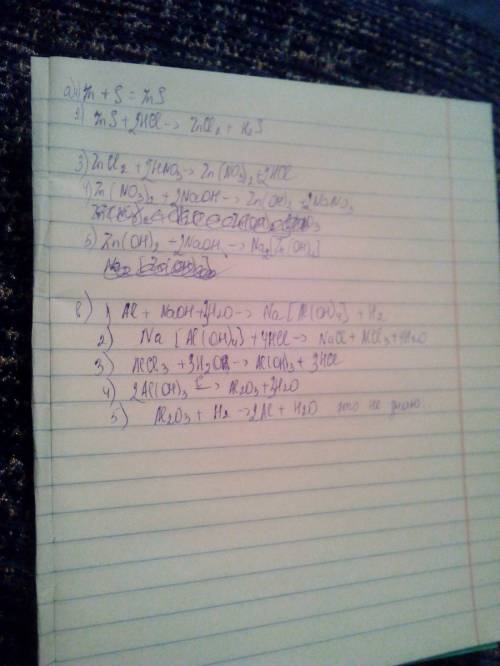 а) 1) Zn + S = ZnS
2) ZnS + 2HCl → ZnCl₂ + H₂S
3) ZnCl₂ + 2HNO₃ → Zn(NO₃)₂ + 2HCl
4) Zn(NO₃)₂ + 2NaOH → Zn(OH)₂ + 2NaNO₃
5) Zn(OH)₂ + 2NaOH → Na₂[Zn(OH)₄]
8) 1) Al + NaOH + 3H₂O → Na[Al(OH)₄] + H₂
2) Na[Al(OH)₄] + 4HCl → NaCl + AlCl₃ + 4H₂O
3) AlCl₃ + 3H₂O → Al(OH)₃ + 3HCl
4) 2Al(OH)₃ → Al₂O₃ + 3H₂O
5) Al₂O₃ + H₂ → 2Al + H₂O это не знаю